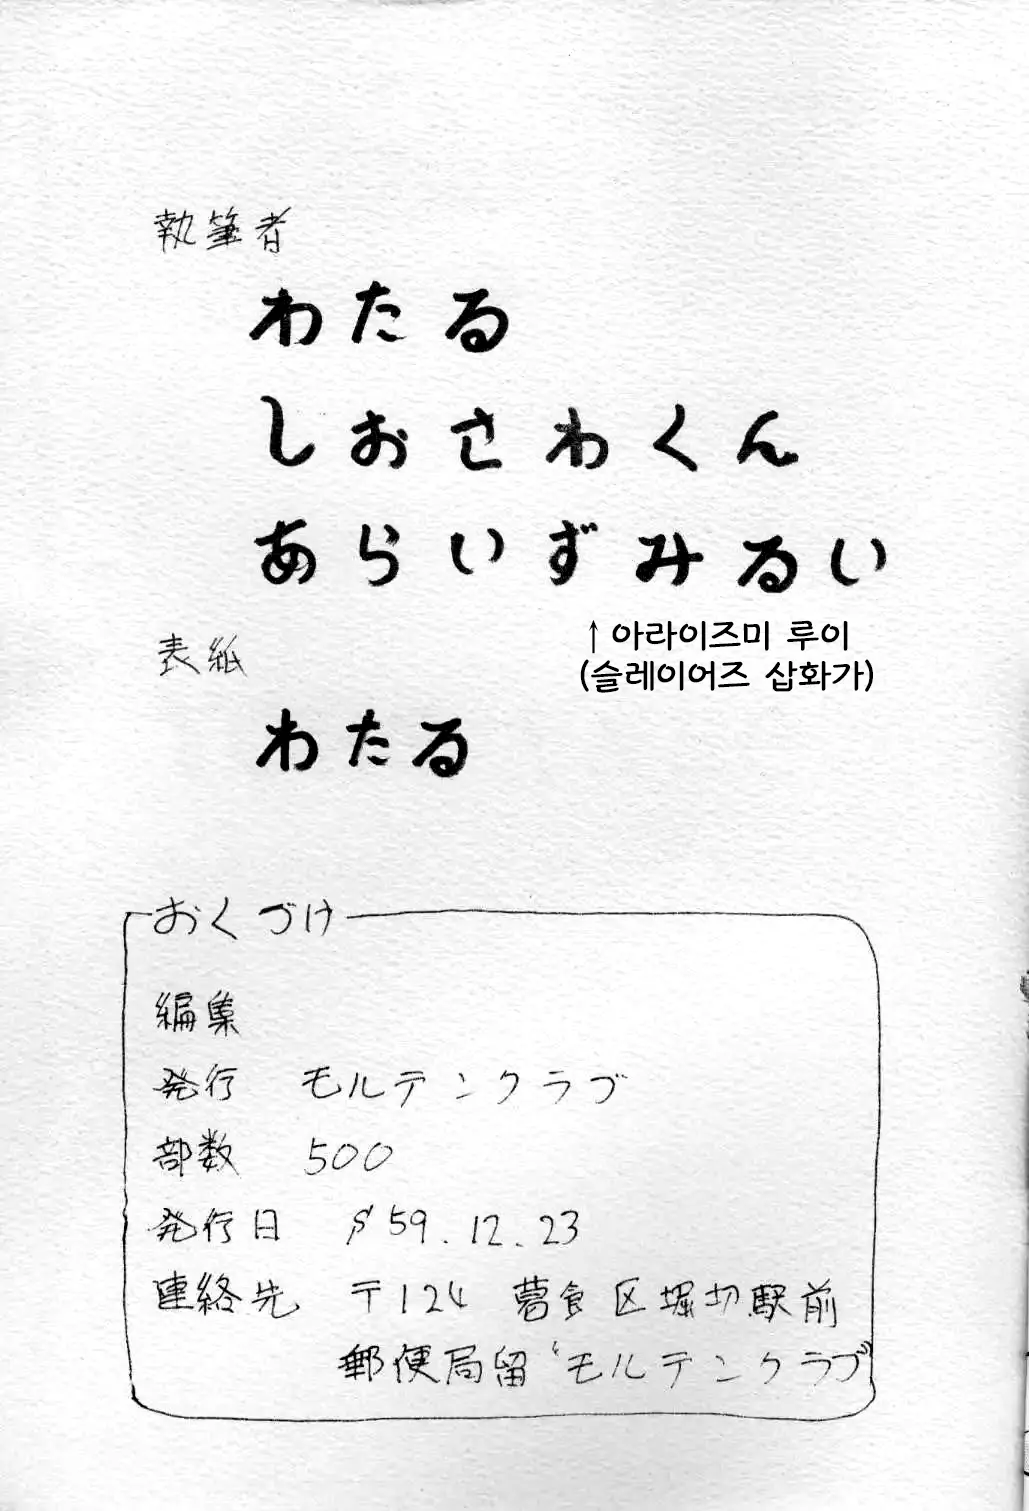 執筆者
わたる
しおさわくん
あらいずみるい
↑아라이즈미 루이
(슬레이어즈 삽화가)
表紙
わたる
おくづけ
編集
発行 モルテンクラブ
部数 500
発行日 S59.12.23
連絡先 〒124 葛飾区堀切駅前
郵便局留“モルテンクラブ”